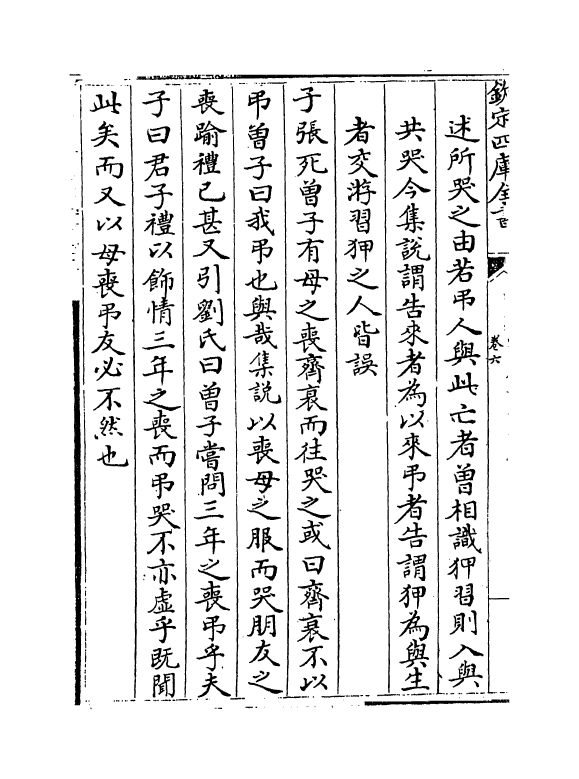 欽定四庫全書
卷六
述所哭之由若弔人與此亡者曽相識狎習則入與
共哭今集說謂告來者為以來弔者告謂狎為與生
者交游習狎之人皆誤
子張死曽子有母之喪齊衰而往哭之或曰齊衰不以
弔曽子曰我弔也與哉集説以喪母之服而哭朋友之
喪踰禮已甚又引劉氏曰曽子嘗問三年之喪弔乎夫
子曰君子禮以飾情三年之喪而弔哭不亦虚乎既聞
此矣而又以母喪弔友必不然也